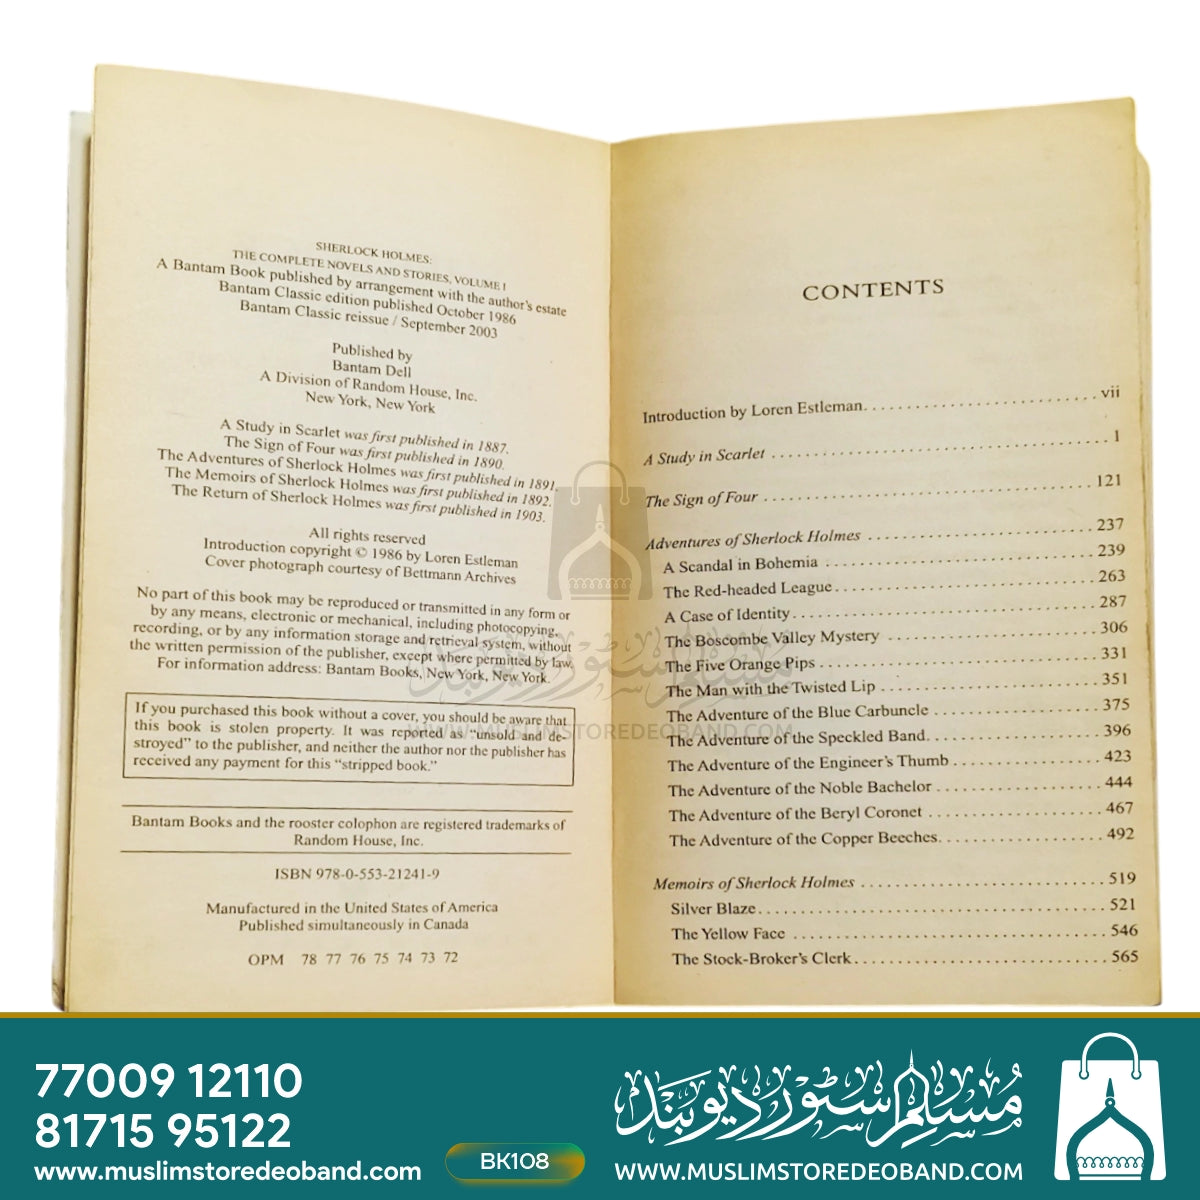 SHERLOCK HOLMES:
THE COMPLETE NOVELS AND STORIES, VOLUME I
A Bantam Book published by arrangement with the author's estate
Bantam Classic edition published October 1986
Bantam Classic reissue / September 2003
Published by
Bantam Dell
A Division of Random House, Inc.
New York, New York
A Study in Scarlet was first published in 1887.
The Sign of Four was first published in 1890.
The Adventures of Sherlock Holmes was first published in 1891.
The Memoirs of Sherlock Holmes was first published in 1892.
The Return of Sherlock Holmes was first published in 1903.
All rights reserved
Introduction copyright © 1986 by Loren Estleman
Cover photograph courtesy of Bettmann Archives
No part of this book may be reproduced or transmitted in any form or
by any means, electronic or mechanical, including photocopying,
recording, or by any information storage and retrieval system, without
the written permission of the publisher, except where permitted by law.
For information address: Bantam Books, New York, New York.
If you purchased this book without a cover, you should be aware that
this book is stolen property. It was reported as "unsold and de-
stroyed" to the publisher, and neither the author nor the publisher has
received any payment for this "stripped book."
Bantam Books and the rooster colophon are registered trademarks of
Random House, Inc.
ISBN 978-0-553-21241-9
Manufactured in the United States of America
Published simultaneously in Canada
OPM 78 77 76 75 74 73 72
CONTENTS
Introduction by Loren Estleman. . . . . . . . . . . . . . . . . . . . . . . . . . vii
A Study in Scarlet . . . . . . . . . . . . . . . . . . . . . . . . . . . . . . . . . . . . 1
The Sign of Four . . . . . . . . . . . . . . . . . . . . . . . . . . . . . . . . . . . 121
Adventures of Sherlock Holmes . . . . . . . . . . . . . . . . . . . . . . . . 237
A Scandal in Bohemia . . . . . . . . . . . . . . . . . . . . . . . . . . . . 239
The Red-headed League. . . . . . . . . . . . . . . . . . . . . . . . . . . 263
A Case of Identity. . . . . . . . . . . . . . . . . . . . . . . . . . . . . . . . 287
The Boscombe Valley Mystery . . . . . . . . . . . . . . . . . . . . . . 306
The Five Orange Pips . . . . . . . . . . . . . . . . . . . . . . . . . . . . . 331
The Man with the Twisted Lip . . . . . . . . . . . . . . . . . . . . . . 351
The Adventure of the Blue Carbuncle . . . . . . . . . . . . . . . . . 375
The Adventure of the Speckled Band. . . . . . . . . . . . . . . . . . 396
The Adventure of the Engineer's Thumb . . . . . . . . . . . . . . . 423
The Adventure of the Noble Bachelor . . . . . . . . . . . . . . . . . 444
The Adventure of the Beryl Coronet . . . . . . . . . . . . . . . . . . 467
The Adventure of the Copper Beeches. . . . . . . . . . . . . . . . . 492
Memoirs of Sherlock Holmes . . . . . . . . . . . . . . . . . . . . . . . . . 519
Silver Blaze. . . . . . . . . . . . . . . . . . . . . . . . . . . . . . . . . . . . . 521
The Yellow Face . . . . . . . . . . . . . . . . . . . . . . . . . . . . . . . . . 546
The Stock-Broker's Clerk. . . . . . . . . . . . . . . . . . . . . . . . . . . 565
مسلم سٹور دیوبند
WWW.MUSLIMSTOREDEOBAND.COM
77009 12110
81715 95122
www.muslimstoredeoband.com
BK108
مسلم سٹور دیوبند
WWW.MUSLIMSTOREDEOBAND.COM